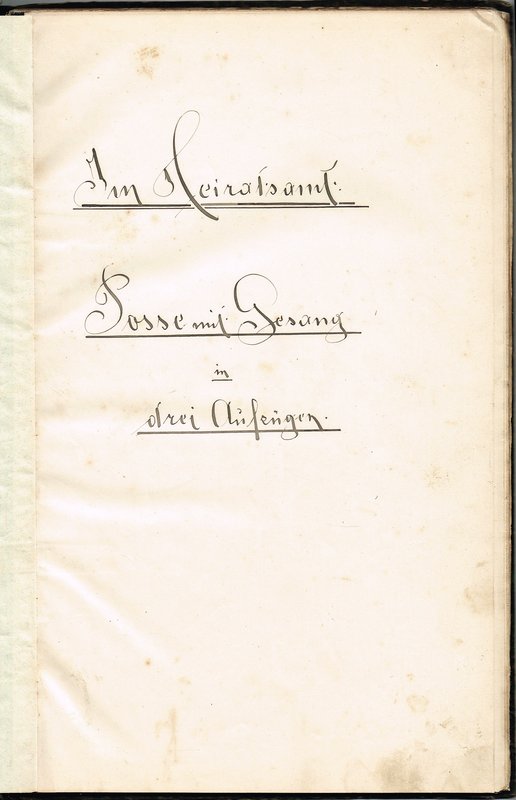 Im Heiratsamt.
Posse mit Gesang
in
drei Aufzügen.